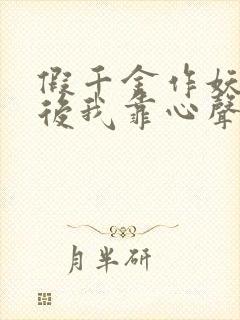 假千金作妖
後我靠心聲
月半研